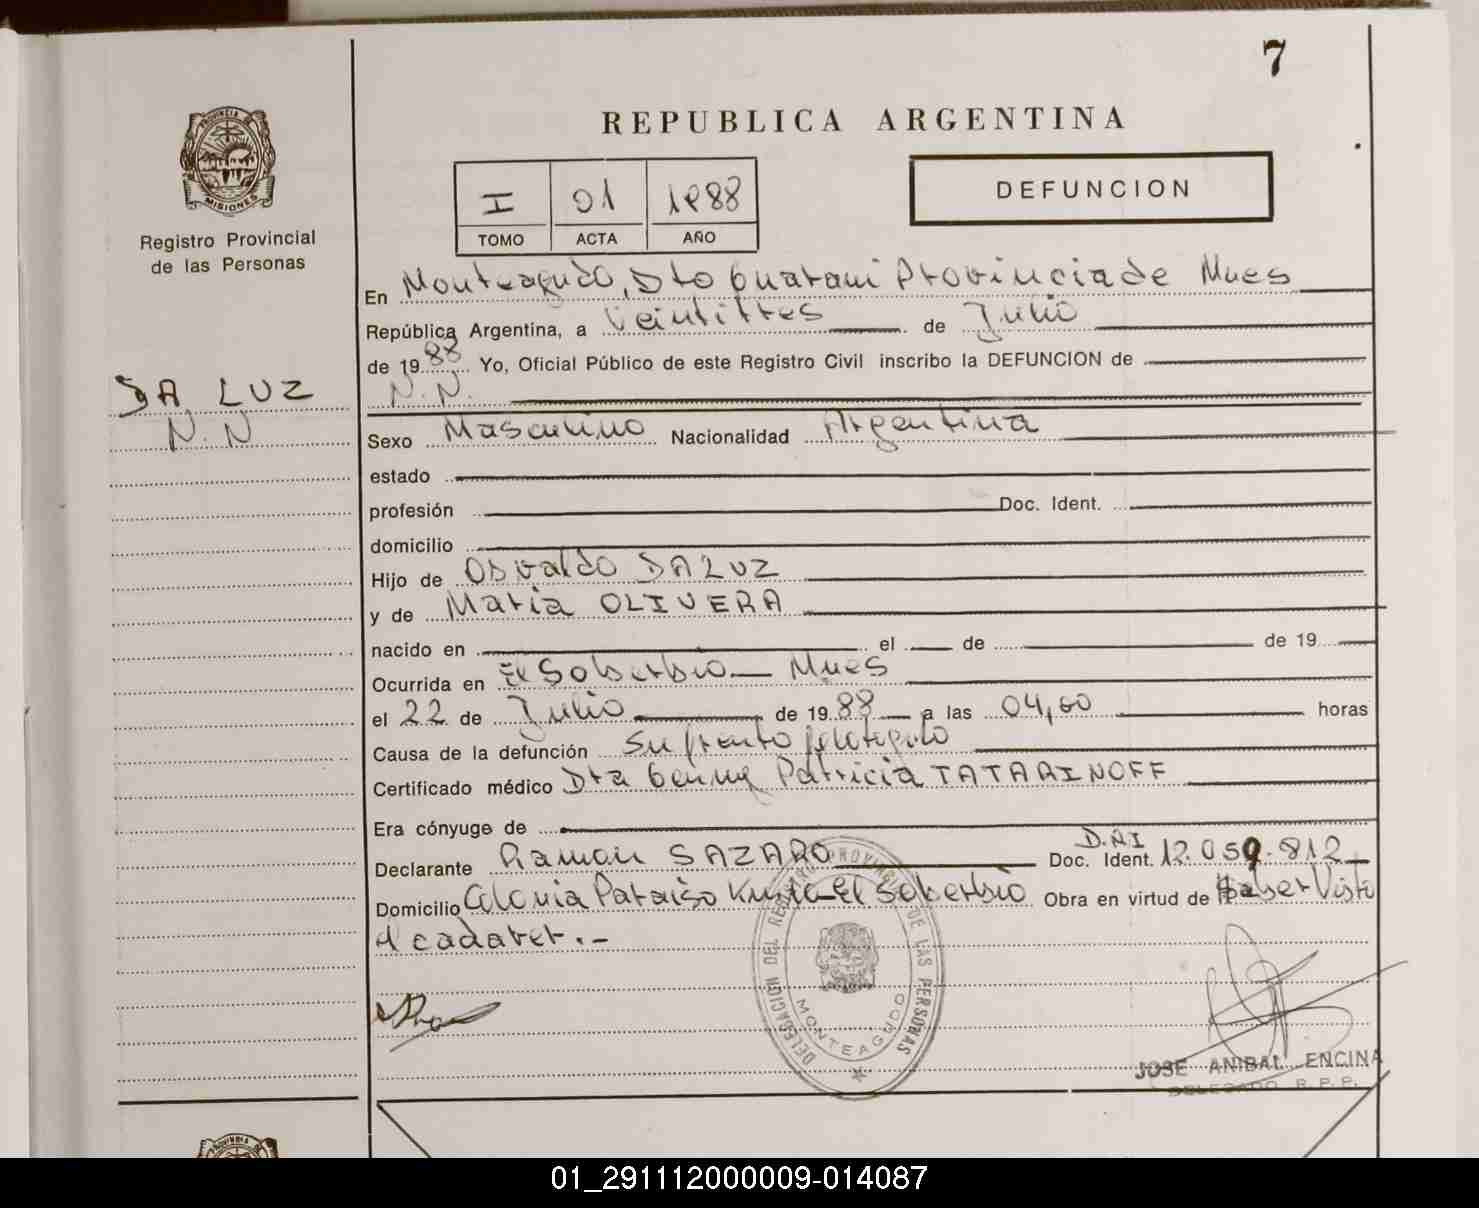 7
REPUBLICA ARGENTINA
PROVINCIA DE
MISIONES
Registro Provincial
de las Personas
I 01 1988
TOMO ACTA AÑO
DEFUNCION
En Monteagudo, Dto Guarani Provincia de Mnes
República Argentina, a Veintitres de Julio
de 1988 Yo, Oficial Público de este Registro Civil inscribo la DEFUNCION de
DA LUZ
N.N
N.N.
Sexo Masculino Nacionalidad Argentina
estado
profesión Doc. Ident.
domicilio
Hijo de Osvaldo DA LUZ
y de Maria OLIVERA
nacido en el de de 19
Ocurrida en El Soberbio Mnes
el 22 de Julio de 1988 a las 04,00 horas
Causa de la defunción Sufrimiento
Certificado médico Dra Patricia TATARINOFF
Era cónyuge de
Declarante Ramon SAZARO D.N.I Doc. Ident. 12.059.812
Domicilio Colonia Paraiso El Soberbio Obra en virtud de Haber Visto
el cadaver.-
DELEGACION DEL REGISTRO PROVINCIAL DE LAS PERSONAS
MONTEAGUDO
JOSE ANIBAL ENCINA
DELEGADO R.P.P.
01_291112000009-014087